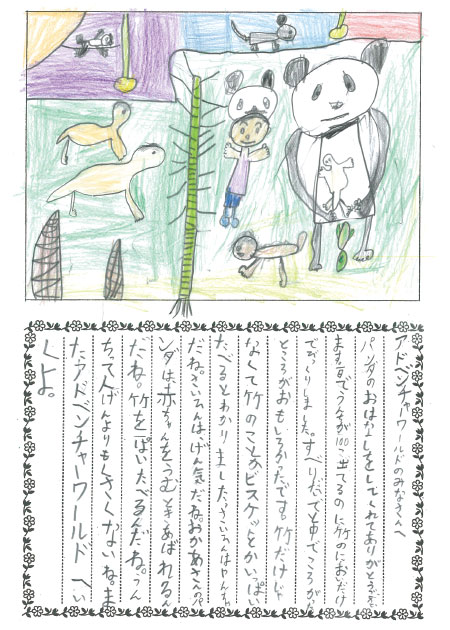 アドベンチャーワールドのみなさんへ
パンダのおはなしをしてくれてありがとうござい
ます。 でうんちが100こ出てるのに竹のにおいだけ
でびっくりしました。すべりだいでと中でころがった
ところがおもしろかったです。竹だけじゃ
なくて竹のことかビスケットとかいっぱい
たべるとわかりました。さいひんはやんちゃ
だね。さいひんは、げん気だね。おかあさんのパ
ンダは赤ちゃんをうむときあばれるん
だね。竹を一ぱいたべるんだね。うん
ちって人げんよりもくさくないね。ま
たアドベンチャーワールドへい
くよ。